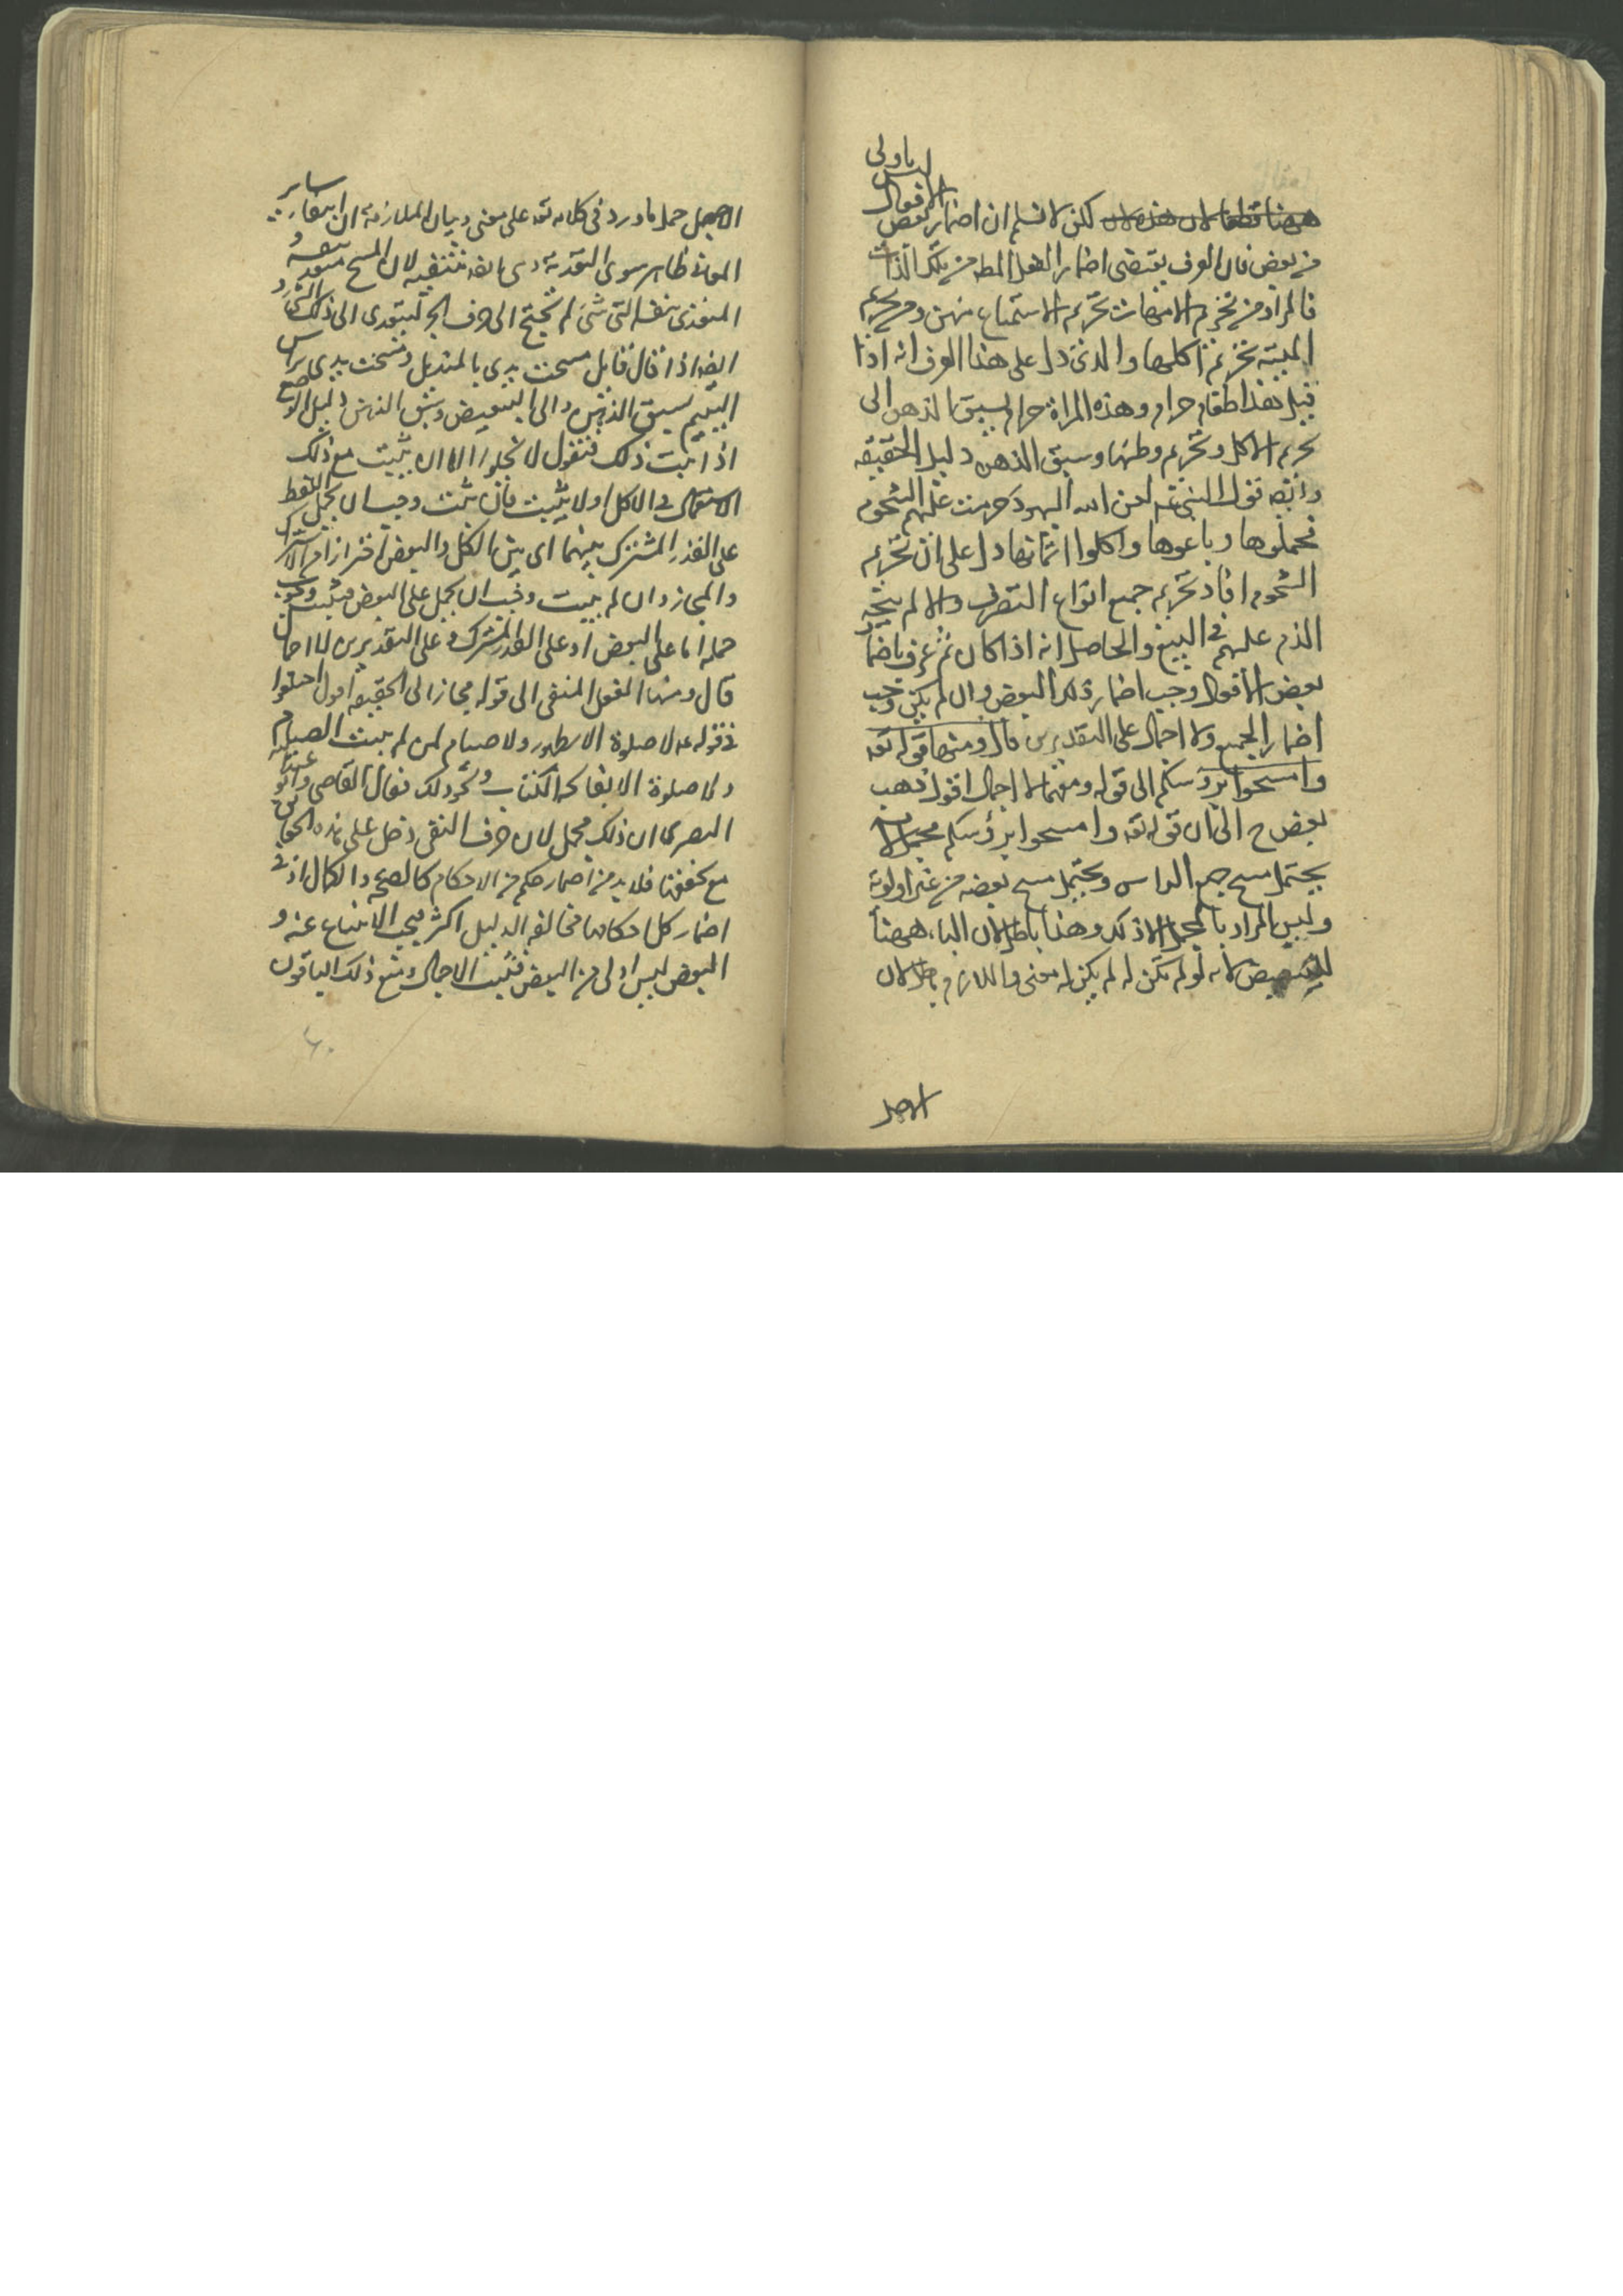 لكن لا نسلم ان اضمار بعض الافعال ليس باولى
من بعض فان العرف يقتضى اضمار الفعل المط من تلك الذات
فالمراد من تحريم الامهات تحريم الاستمتاع منهن ومن تحريم
الميتة تحريم اكلها والذى دل على هذا العرف انه اذا
قيل هذا طعام حرام وهذه المراة حرام يسبق الذهن الى
تحريم الاكل وتحريم وطئها وسبق الذهن دليل الحقيقة
وايضا قول النبى عم لعن الله اليهود حرمت عليهم الشحوم
فجملوها وباعوها واكلوا اثمانها دل على ان تحريم
الشحوم افاد تحريم جميع انواع التصرف والا لم يتجه
الذم عليهم فى البيع والحاصل انه اذا كان ثم عرف باضمار
بعض الافعال وجب اضمار ذلك البعض وان لم يكن وجب
اضمار الجميع ولا اجمال على التقديرين قال ومنها قوله تعه
وامسحوا برؤسكم الى قوله ومنها لا اجمال اقول ذهب
بعض ح الى ان قوله تعه وامسحوا برؤسكم مجمل لانه
يحتمل مسح جميع الراس ويحتمل مسح بعضه من غير اولوية
وليس المراد بالمجمل الا ذلك وهذا باطل لان الباء ههنا
للتبعيض لانه لو لم تكن له لم يكن له معنى واللازم باطل لان
الاصل
الاصل حمل ما ورد فى كلامه تعه على معنى وبيان الملازمة ان انتفاء ساير
المعانى ظاهر سوى التعدية وهى ايضا منتفية لان المسح متعد بنفسه و
المتعدى بنفسه الى شئ لم يحتج الى حرف الجر ليتعدى الى ذلك الشئ و
ايضا اذا قال قايل مسحت يدى بالمنديل ومسحت يدى براس
اليتيم يسبق الذهن الى التبعيض وسبق الذهن دليل الوضع
اذا ثبت ذلك فنقول لا يخلو اما ان يثبت مع ذلك
الاستعمال فى الكل او لا يثبت فان ثبت وجب ان يحمل اللفظ
على القدر المشترك بينهما اى بين الكل والبعض احترازا من الاشتراك
والمجاز وان لم يثبت وجب ان يحمل على البعض فيثبت وجوب
حمله اما على البعض او على القدر المشترك وعلى التقديرين لا اجمال
قال ومنها الفعل المنفى الى قوله مجاز الى الحقيقة اقول اختلفوا
فى قوله عم لا صلوة الا بطهور ولا صيام لمن لم يبيت الصيام
ولا صلوة الا بفاتحة الكتاب ونحو ذلك فقال القاضى وابو عبد الله
البصرى ان ذلك مجمل لان حرف النفى دخل على هذه الحقايق
مع تحققها فلا بد من اضمار حكم من الاحكام كالصحة والكمال اذ فى
اضمار كل احكامها مخالفة الدليل اكثر فيجب الامتناع عنه و
البعض ليس اولى من البعض فثبت الاجمال ومنع ذلك الباقون